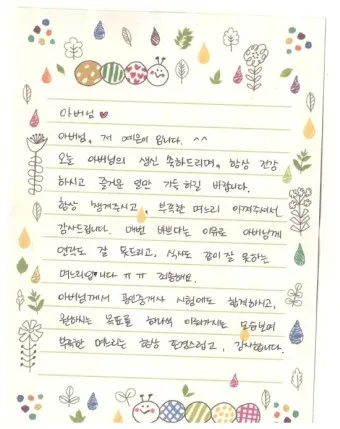 아버님 ♥
아버님, 저 예은이 입니다. ^^
오늘 아버님의 생신 축하드리며, 항상 건강
하시고 즐거운 일만 가득 하길 바랍니다.
항상 챙겨주시고, 부족한 며느리 아껴주셔서
감사드립니다. 매번 바쁘다는 이유로 아버님께
연락도 잘 못드리고, 식사도 같이 잘 못하는
며느리입니다 ㅠㅠ 죄송해요.
아버님께서 공인중개사 시험에도 합격하시고,
원하시는 목표를 하나씩 이뤄가시는 모습보며
부족한 며느리는 항상 존경스럽고, 감사합니다.